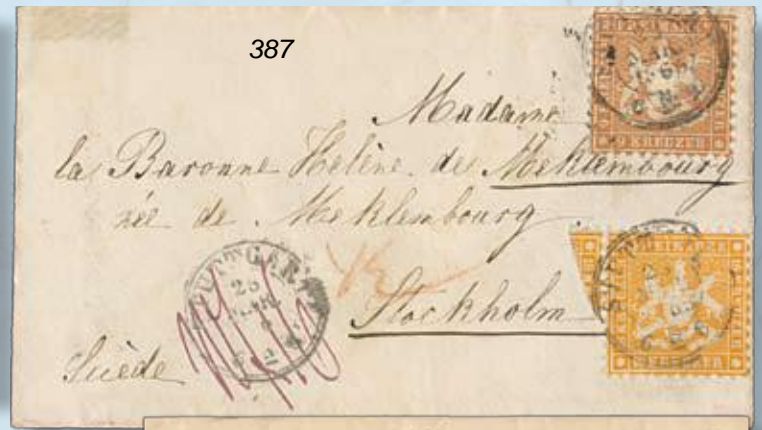 387
Madame
la Baronne Helène de Meklembourg
née de Meklembourg
Stockholm
Suède
STUTTGART
9 KREUZER
KREUZER